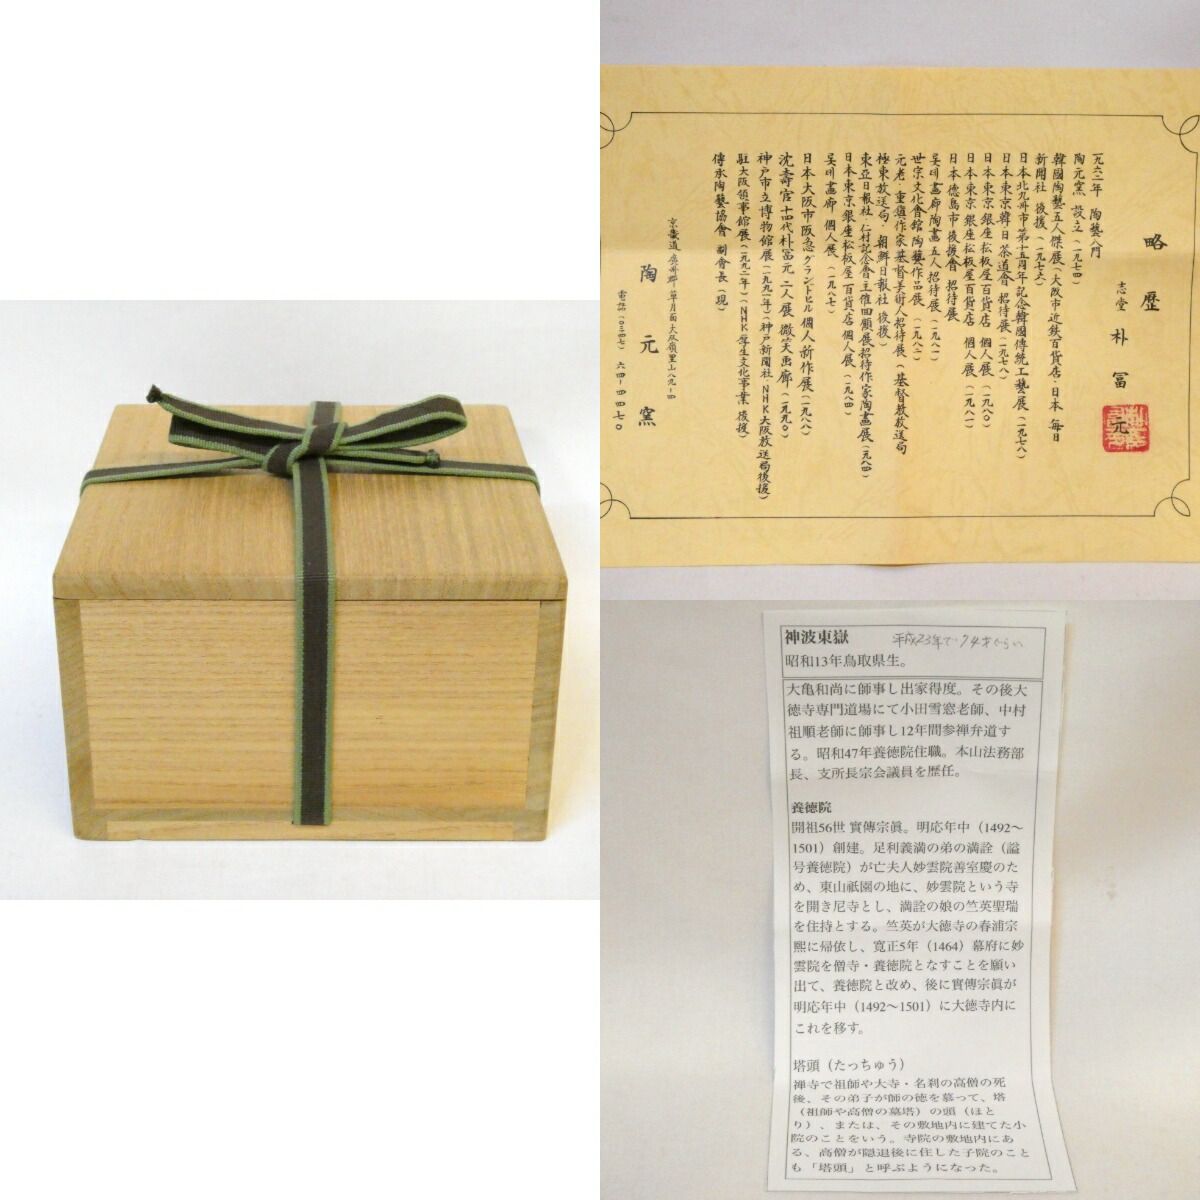 略歴
志堂 朴冨元
一九六二年 陶藝入門
陶元窯 設立(一九七四)
韓國陶藝五人傑展(大阪市近鉄百貨店・日本 毎日
新聞社 後援(一九七六)
日本北九州市第十五周年記念韓國傳統工藝展(一九七八)
日本東京韓日茶道會 招待展(一九七八)
日本東京 銀座松坂屋百貨店 個人展(一九八〇)
日本東京 銀座松坂屋百貨店 個人展(一九八一)
日本徳島市後援會 招待展
画廊陶畵五人招待展(一九八一)
世宗文化會館 陶藝作品展(一九八二)
元老・重鎭作家基督美術人招待展(基督教放送局
極東放送局・朝鮮日報社 後援)
東亞日報社・仁村記念會主催回顧展招待作家陶畵展(一九八四)
日本東京銀座松坂屋百貨店 個人展(一九八四)
畵廊 個人展(一九八七)
日本大阪市阪急グランドビル個人新作展(一九八八)
沈壽官十四代朴冨元二人展 微笑画廊(一九九〇)
神戸市立博物館展(一九九一年)(神戸新聞社・NHK大阪放送局後援)
駐大阪領事館展(一九九二年)(NHK厚生文化事業 後援)
傳承陶藝協會 副會長(現)
京畿道 廣州郡
陶元窯
電話
神波東嶽 平成23年で74才ぐらい
昭和13年鳥取県生。
大亀和尚に師事し出家得度。その後大
徳寺専門道場にて小田雪窓老師、中村
祖順老師に師事し12年間参禅弁道す
る。昭和47年養徳院住職。本山法務部
長、支所長宗会議員を歴任。
養徳院
開祖56世 實傳宗眞。明応年中(1492〜
1501)創建。足利義満の弟の満詮(謚
号養徳院)が亡夫人妙雲院善室慶のた
め、東山祇園の地に、妙雲院という寺
を開き尼寺とし、満詮の娘の竺英聖瑞
を住持とする。竺英が大徳寺の春浦宗
熙に帰依し、寛正5年(1464)幕府に妙
雲院を僧寺・養徳院となすことを願い
出て、養徳院と改め、後に實傳宗眞が
明応年中(1492〜1501)に大徳寺内に
これを移す。
塔頭(たっちゅう)
禅寺で祖師や大寺・名刹の高僧の死
後、その弟子が師の徳を慕って、塔
(祖師や高僧の墓塔)の頭(ほと
り)、または、その敷地内に建てた小
院のことをいう。寺院の敷地内にあ
る、高僧が隠退後に住した子院のこと
も「塔頭」と呼ぶようになった。